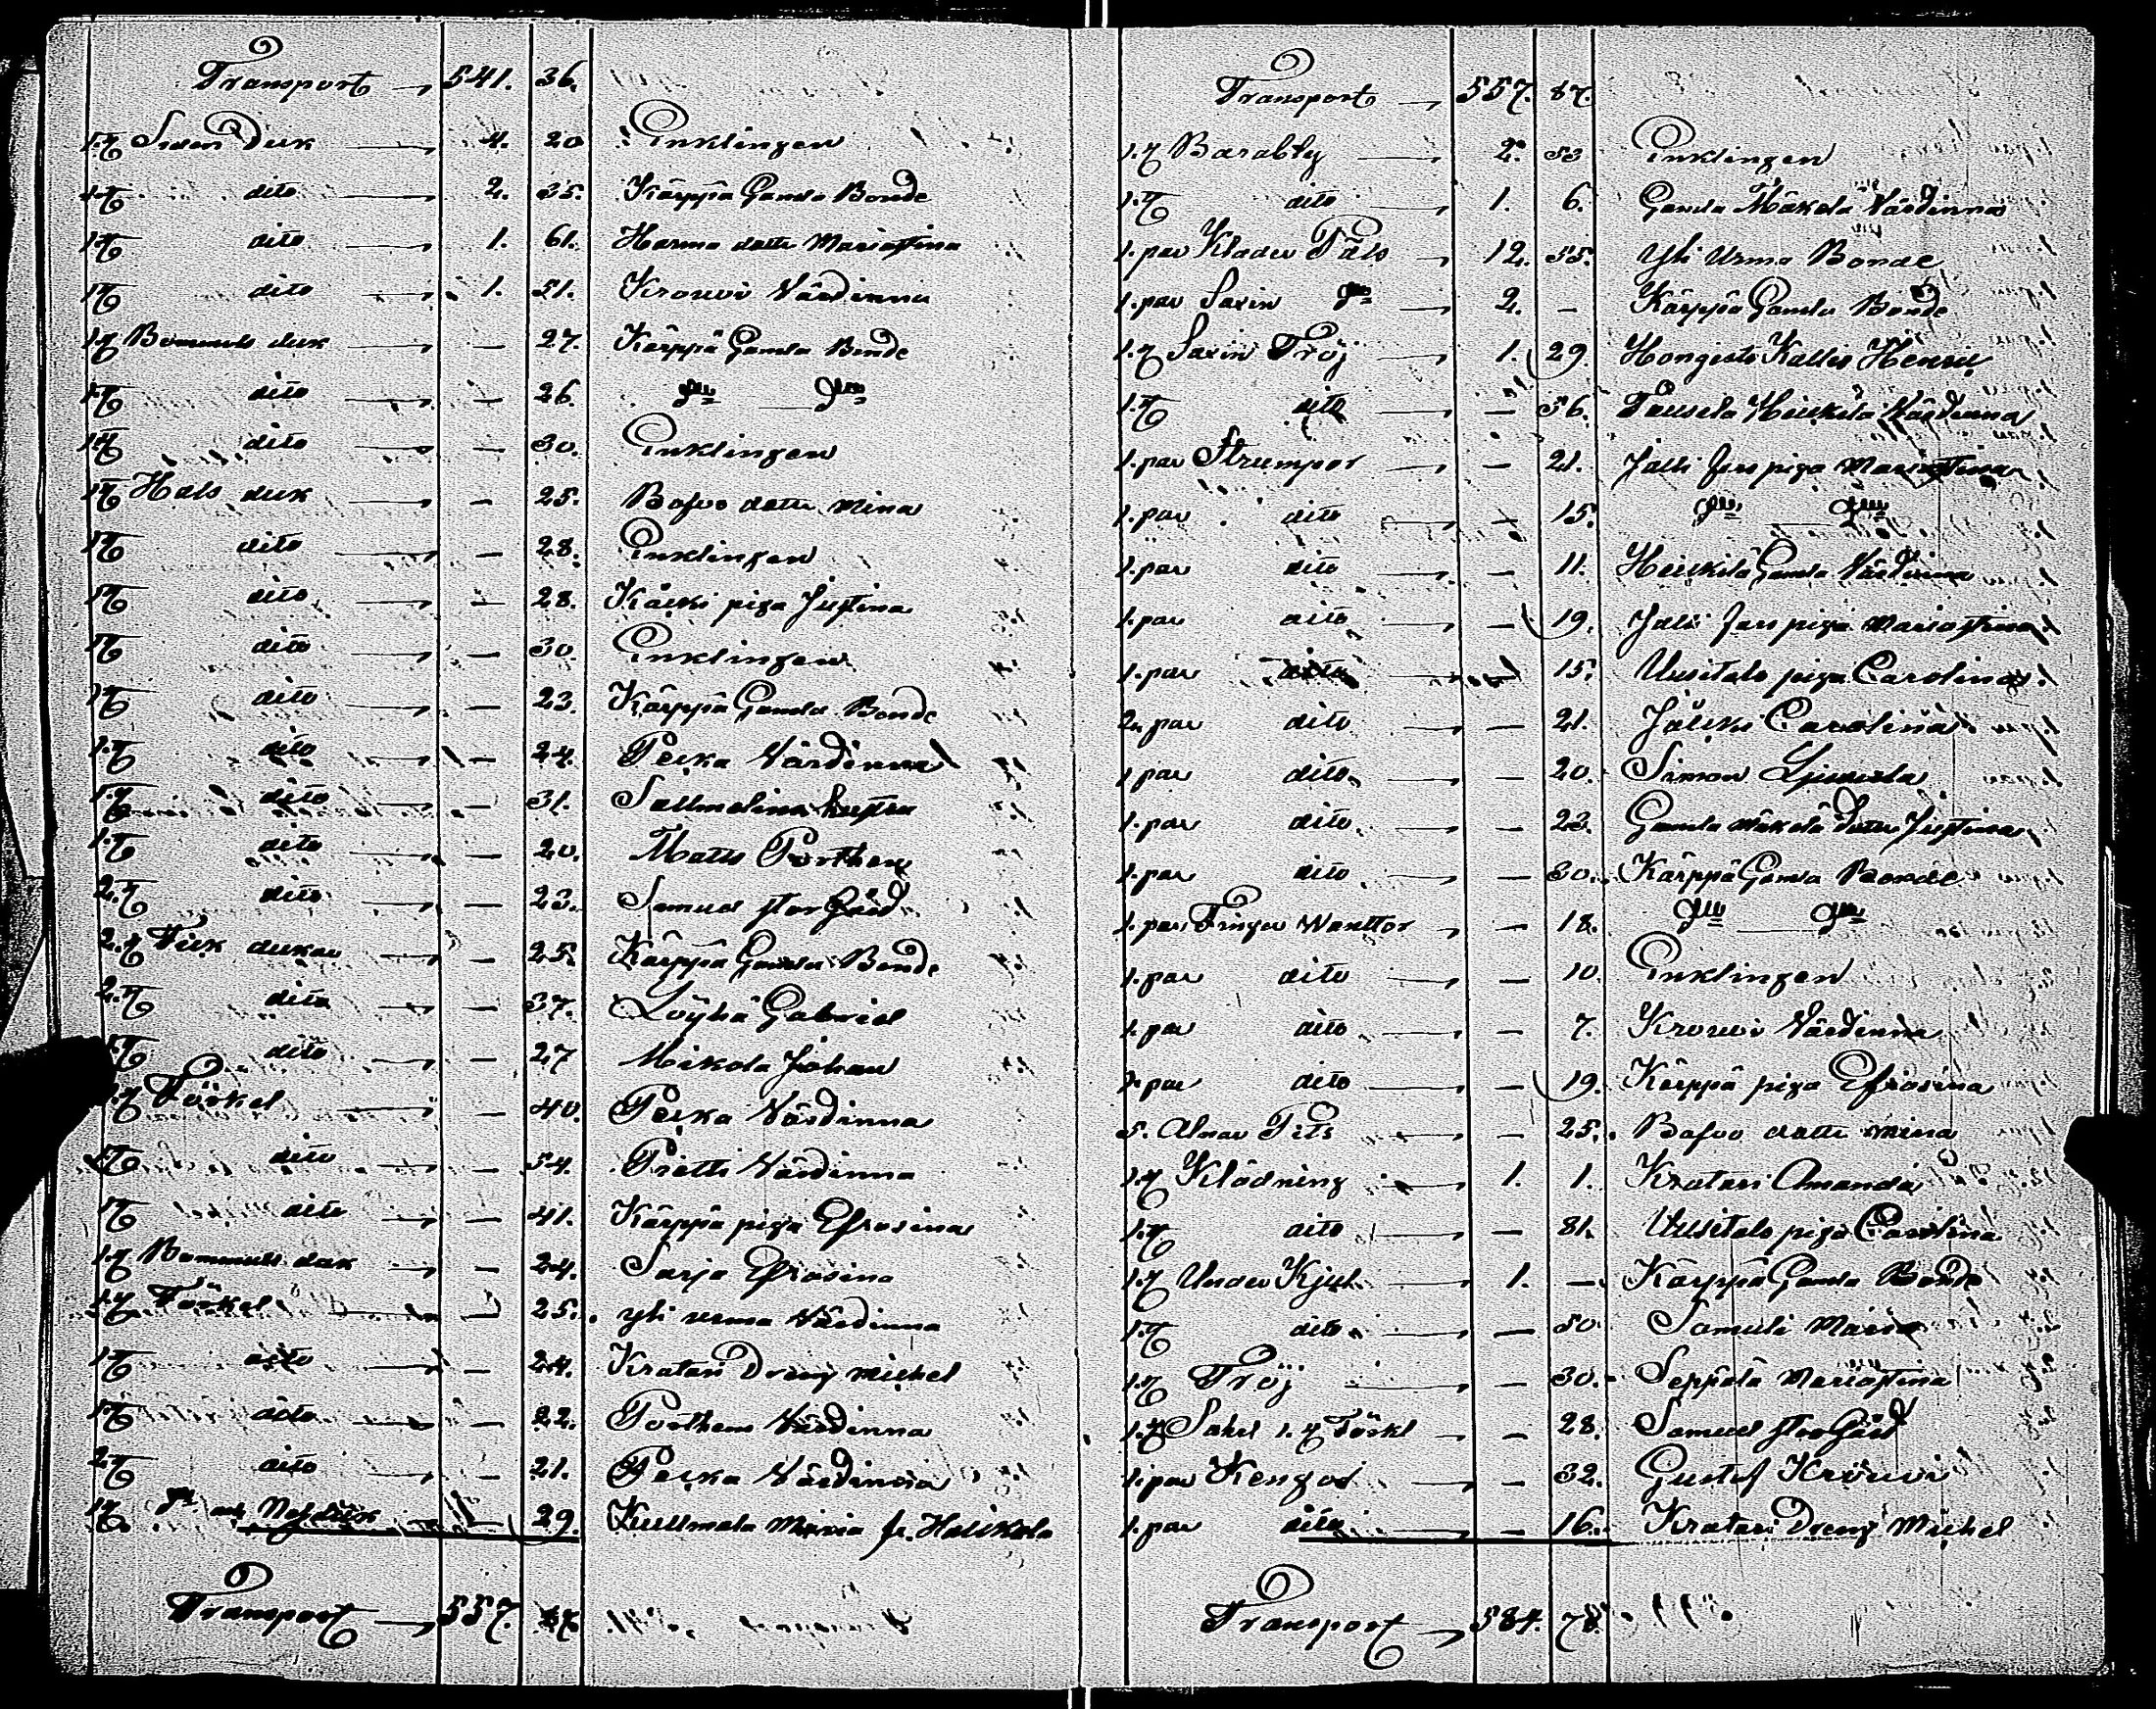 Transport — 541. 36.
1 st Siden Duk — 4. 20 Enklingen
1 st dito — 2. 35. Käyppä Gamla Bonde
1 st dito — 1. 61. Harma dottr Mariastina
1 st dito — 1. 51. Krouvi Värdinna
1 st Bommuls duk — — 27. Käyppä Gamla Bonde
1 st dito — — 26. Dito — Dito
1 st dito — — 30. Enklingen
1 st Hals duk — 25. Bofvo dottr Mina
1 st dito — — 28. Enklingen
1 st dito — — 28. Kärki piga Justina
1 st dito — — 30. Enklingen
1 st dito — — 23. Käyppä Gamla Bonde
1 st dito — — 24. Pecka Värdinna
1 st dito — — 31. Sallmelina
1 st dito — — 20. Matts Porthen
2. st dito — — 23. Samuel storgård
2. st Fick dukar — — 25. Käyppä Gamla Bonde
2. st dito — — 37. Löyhä Gabriel
st dito — — 27 Mikola Johan
st Förkel — — 40. Pecka Värdinna
st dito — — 54. Pretti Värdinna
1 st dito — — 41. Käyppä piga Efrosina
1 st Bommuls duk — — 24. Sarja Efrosina
1 st Förkel — — 25. yli urma Värdinna
1 st dito — — 24. Kratari Dreng Michel
1 st dito — — 22. Porthens Värdinna
2 st dito — — 21. Pecka Värdinna
1 st Dito och Nesduk — — 29. Kullmala Maria fr. Haukola
Transport — 557. 87.
Transport — 557. 87.
1. st Barablty — 2. 53 Enklingen
1. st dito — 1. 6. Gamla Mäkelä Värdinna
1. par Klader Päls — 12. 55. Yli Urma Bonde
1. par Saxin Dito — 2. — Käyppä Gamla Bonde
1. st Saxin Tröj — 1. 29. Hongisto Kallis Henric
1. st dito — — 56. Heickilä Värdinna
1. par Strumpor — — 21. Jalli Jers piga Mariastina
1. par dito — — 15. Dito — Dito
1. par dito — — 11. Heickilä Gamla Värdinna
1. par dito — — 19. Jalli Jers piga Mariastina
1. par dito — 15. Uusitalo piga Carolina
2. par dito — — 21. Jälcki Carolina
1 par dito — — 20. Simon Ljunala
1. par dito — — 23. Gamla Mäkelä Dottr Justina
1. par dito — — 30. Käyppä Gamla Bonde
1. par Finger Wanttor — — 18. Dito — Dito
1. par dito — — 10. Enklingen
1. par dito — — 7. Krouvi Värdinna
1. par dito — — 19. Käyppä piga Efrosina
5. Alnar Pits — — 25. Bofvo dottr Mina
1 st Klädning — 1. 1. Kratari Amanda
1. st dito — — 81. Uusitalo piga Carolina
1. st Under Kjol — 1. — Käyppä Gamla Bonde
1. st dito — — 50. Samuli Maria
1. st Tröj — — 30. Seppälä Mariastina
1. st Sahel 1. st Förkl — — 28. Samuel storgård
1. par Kengor — — 32. Gustaf Krouvi
1. par dito — — 16. Kratari Dreng Michel
Transport — 584. 78.